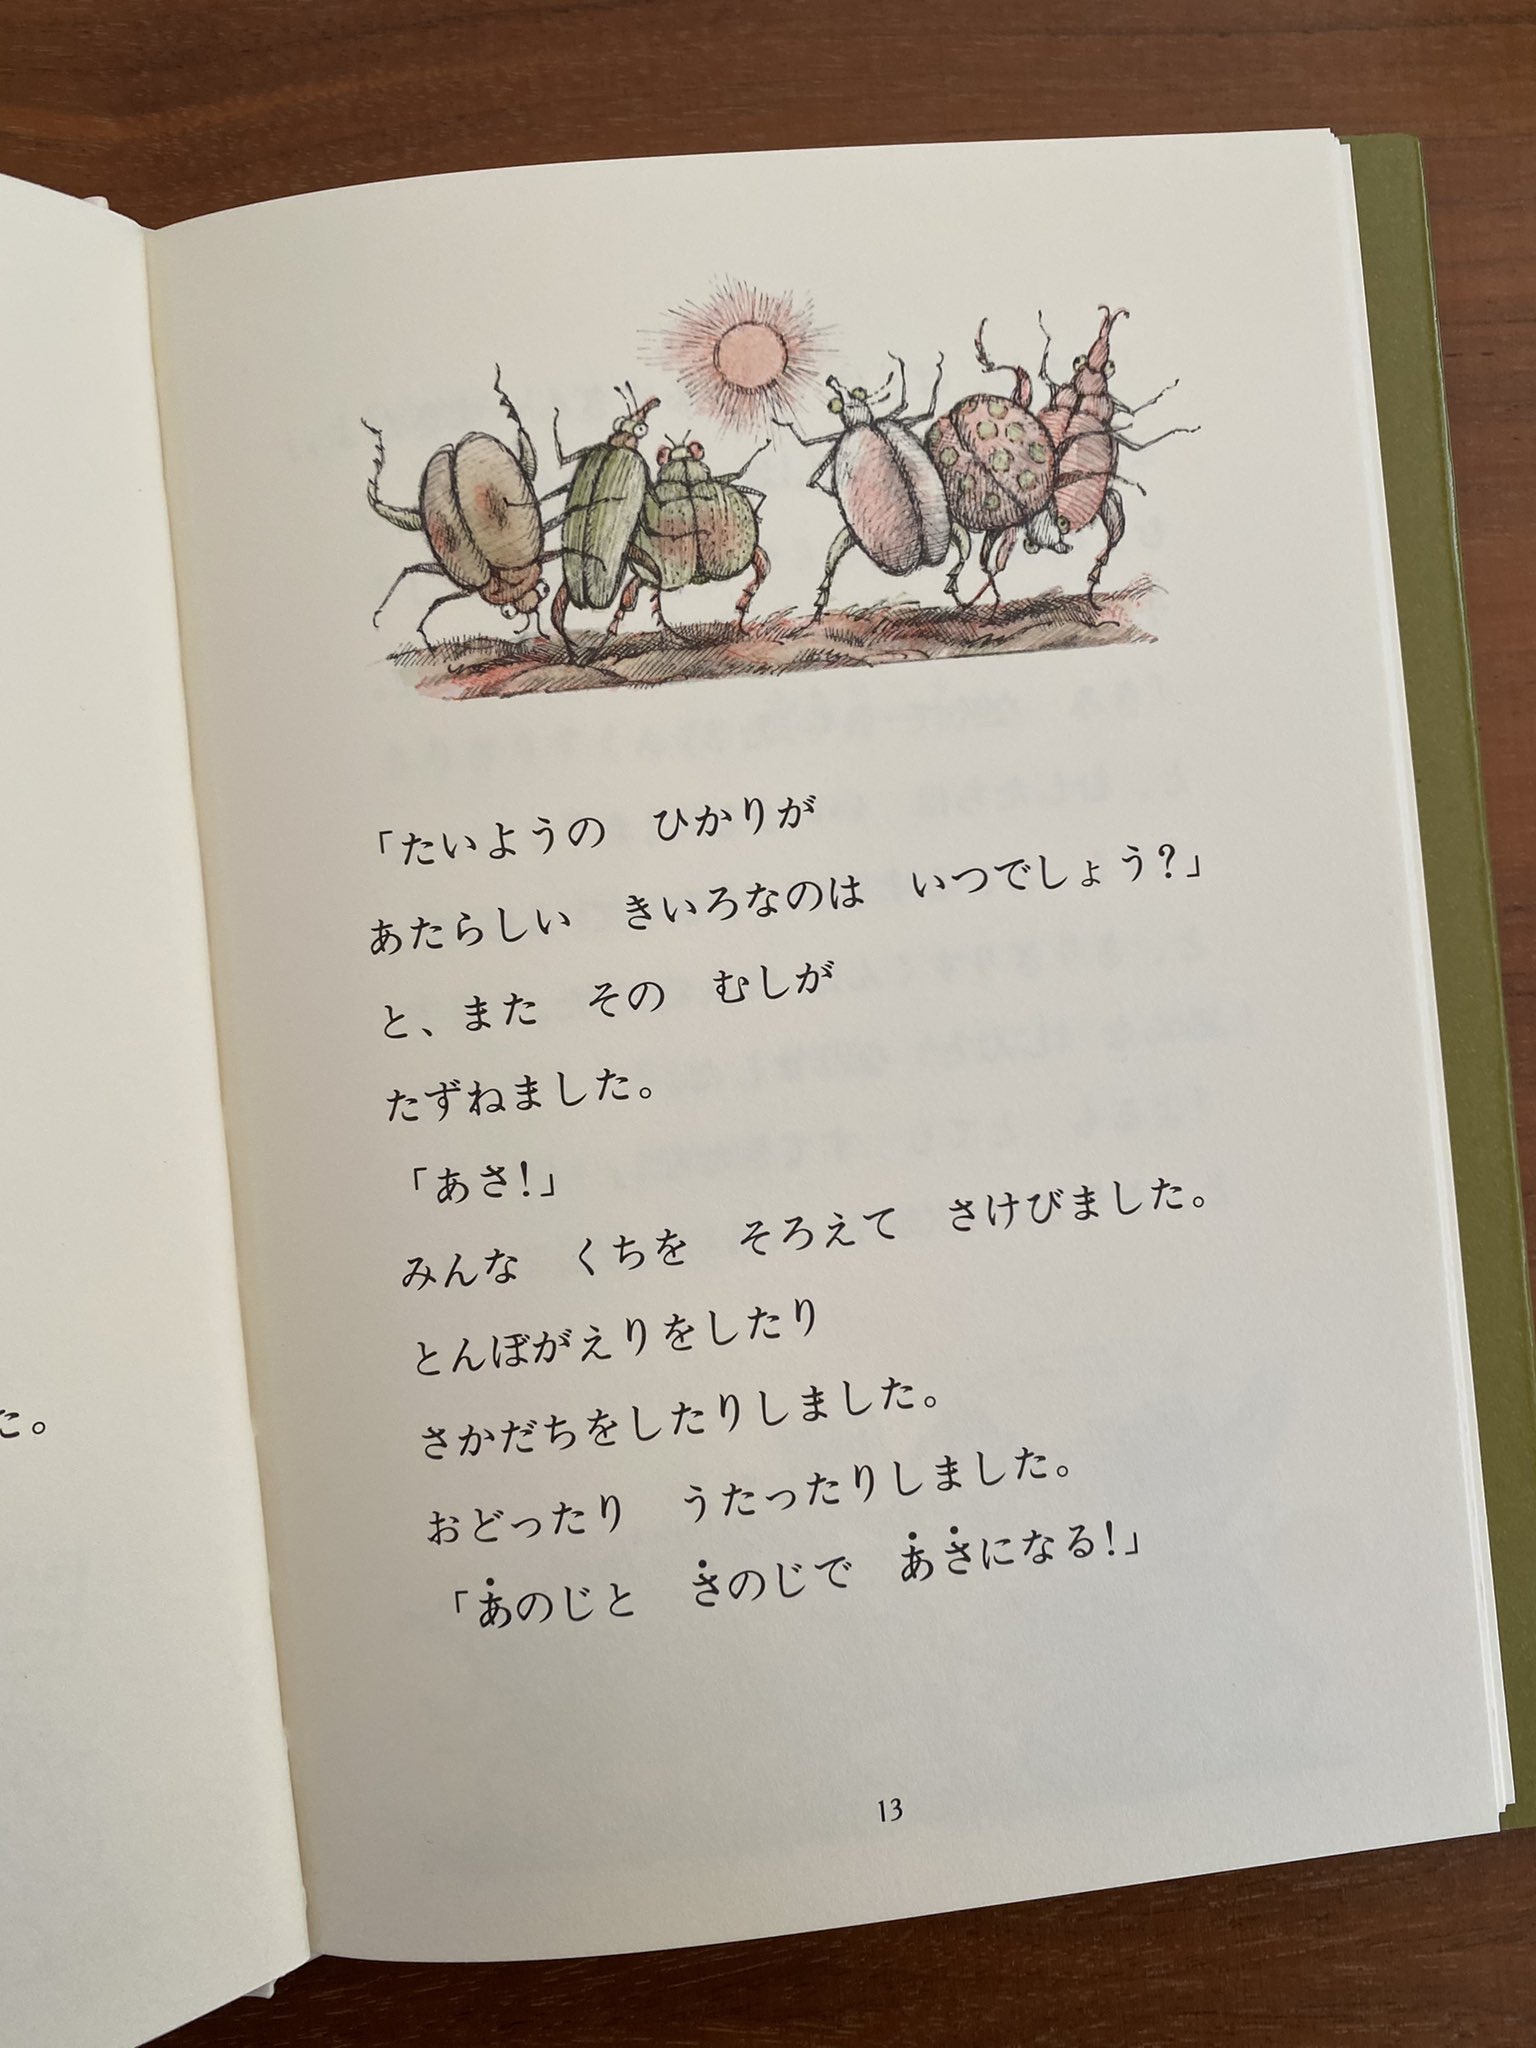 「たいようの　ひかりが
あたらしい　きいろなのは　いつでしょう？」
と、また　その　むしが
たずねました。
「あさ！」
みんな　くちを　そろえて　さけびました。
とんぼがえりをしたり
さかだちをしたりしました。
おどったり　うたったりしました。
「あのじと　さのじで　あさになる！」
13
た。